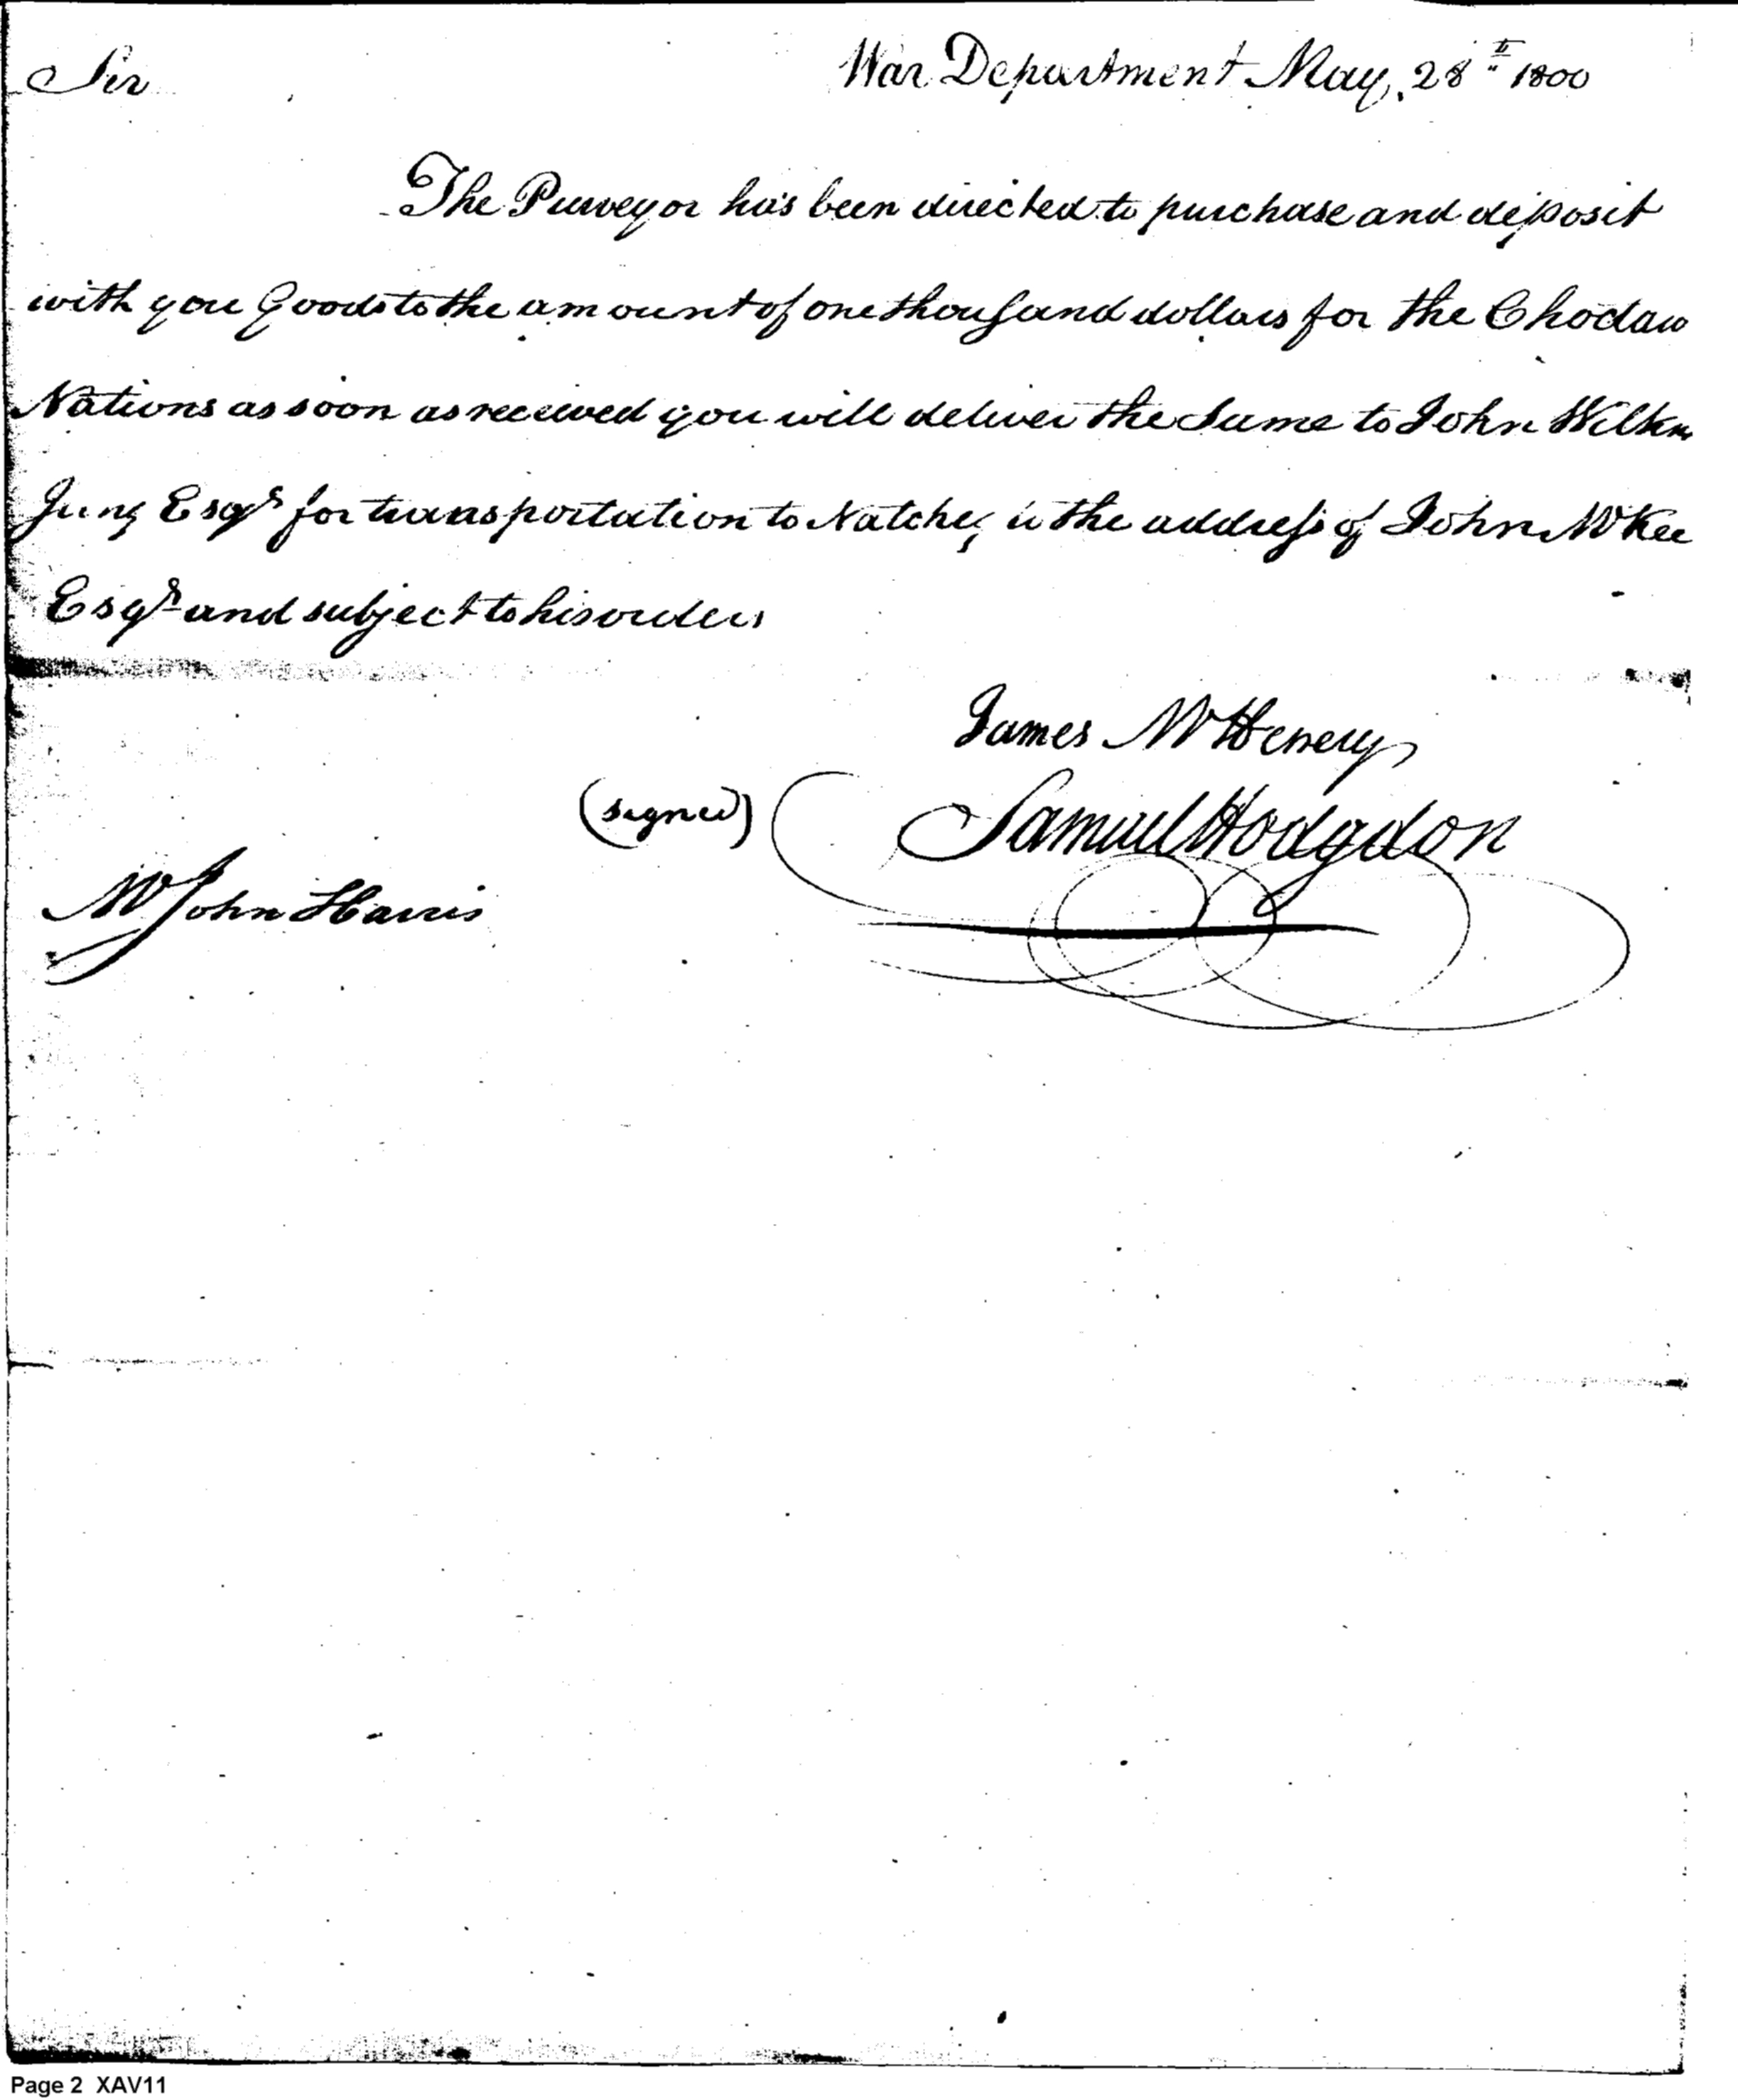 Sir
War Department May, 28th 1800
The Purveyor has been directed to purchase and deposit
with you Goods to the amount of one thousand dollars for the Choctaw
Nations as soon as received you will deliver the Same to John Wilkin
Jung Esqr for transportation to Natchez to the address of John McKee
Esqr and subject to his orders
James McHenery
(signed) Samuel Hodgdon
Mr John Harris
Page 2 XAV11